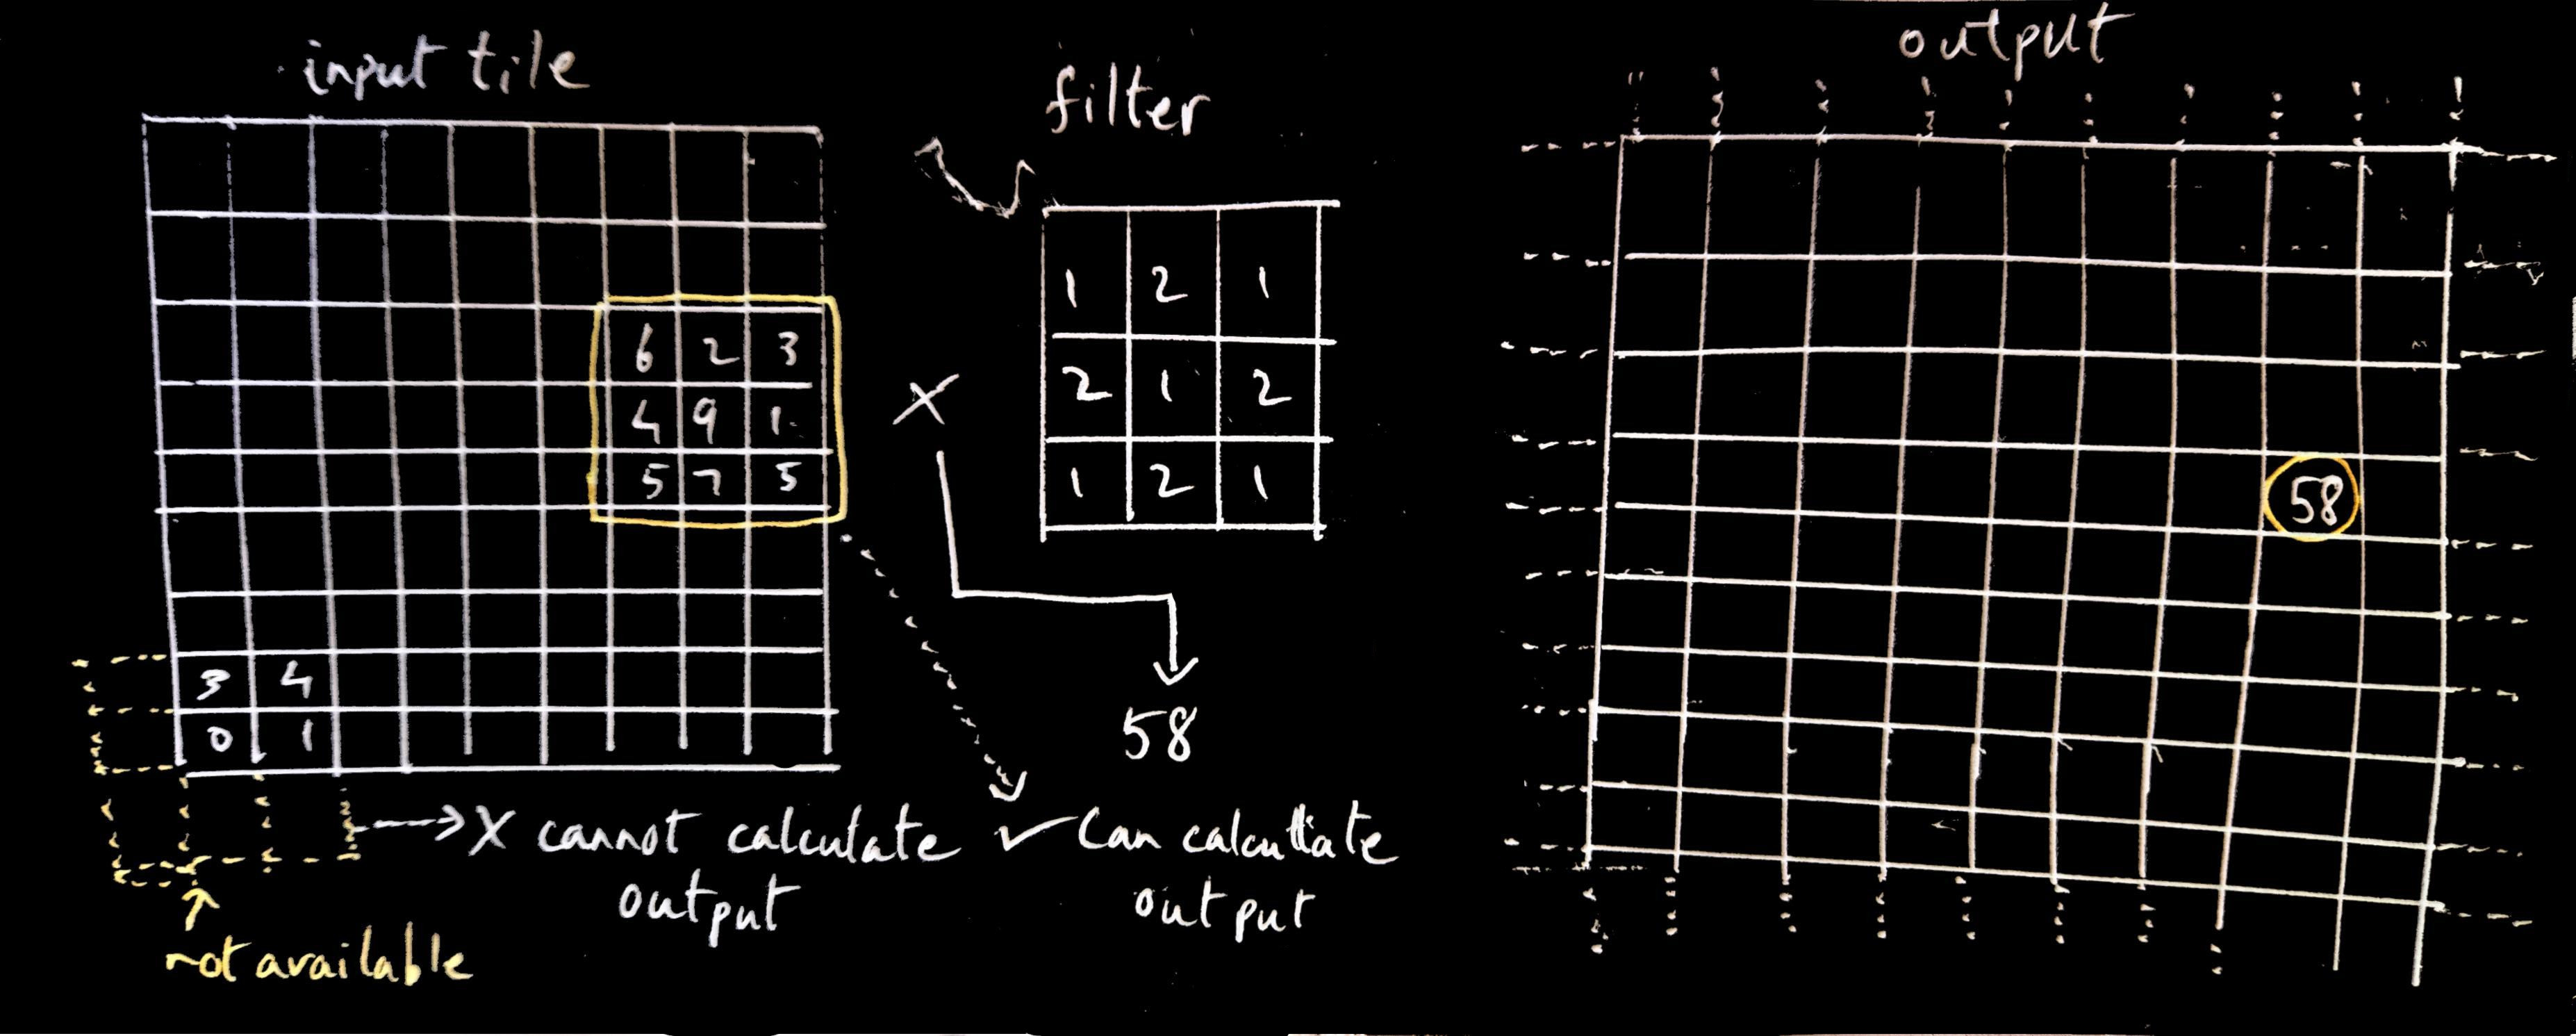 input tile
6 2 3
4 9 1
5 7 5
3 4
0 1
not available
X cannot calculate
output
filter
1 2 1
2 1 2
1 2 1
X
58
✓ Can calcultate
output
output
58